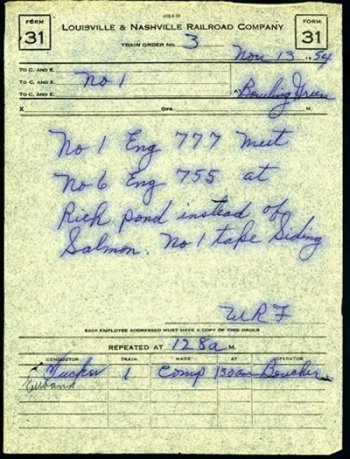 FORM 31
LOUISVILLE & NASHVILLE RAILROAD COMPANY
FORM 31
TRAIN ORDER NO. 3
Nov 13 1954
TO C. AND E.
TO C. AND E. No 1
TO C. AND E.
At Bowling Green
X OPR. M.
No 1 Eng 777 Meet
No 6 Eng 755 at
Rich pond instead of
Salmon. No 1 take Siding
WRF
EACH EMPLOYEE ADDRESSED MUST HAVE A COPY OF THIS ORDER
REPEATED AT 128a M.
CONDUCTOR TRAIN MADE AT OPERATOR
Tucker 1 Comp 130am Boucher
Eubank